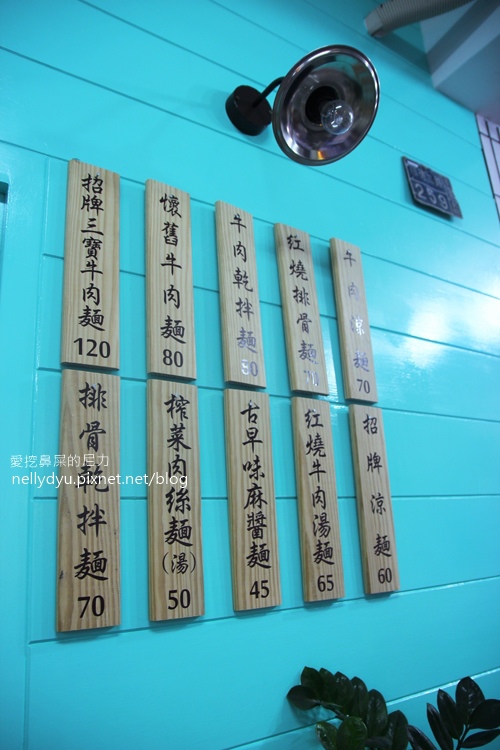 招牌三寶牛肉麵 120
懷舊牛肉麵 80
牛肉乾拌麵 80
紅燒排骨麵 70
牛肉涼麵 70
排骨乾拌麵 70
榨菜肉絲麵(湯) 50
古早味麻醬麵 45
紅燒牛肉湯麵 65
招牌涼麵 60
愛挖鼻屎的尼力
nellydyu.pixnet.net/blog